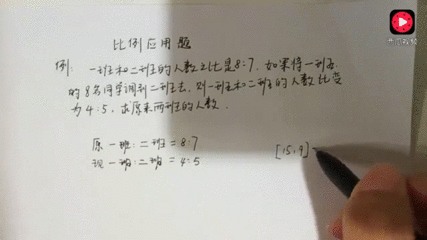 比例应用题
例: 一班和二班的人数之比是8:7, 如果将一班
的8名同学调到二班去, 则一班和二班的人数比变
为4:5, 求原来两班的人数.
原 一班:二班=8:7
现 一班:二班=4:5
[15,9]